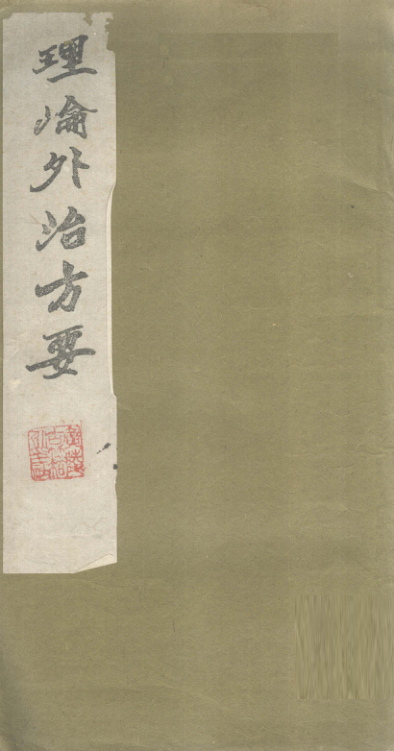 理瀹外治方要